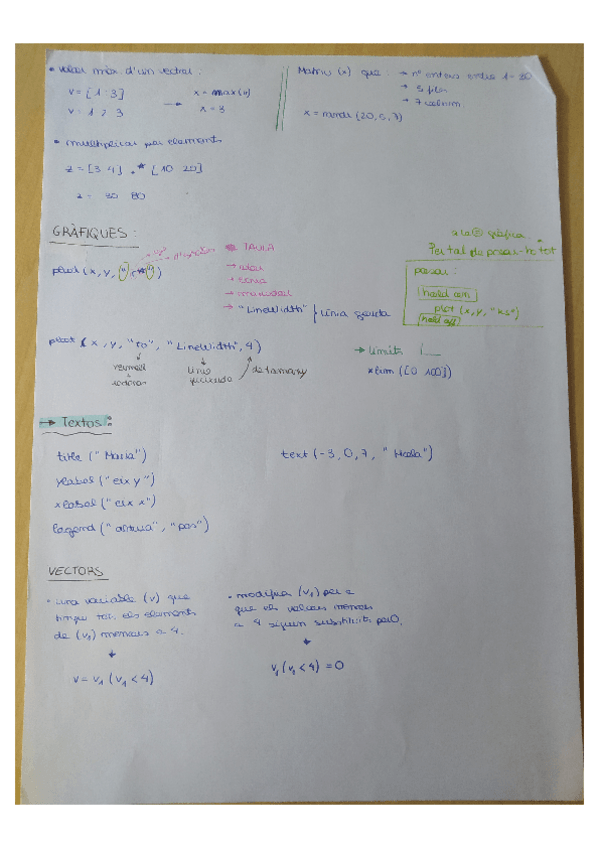 • valor màx. d'un vector:
v = [1:3]
v = 1 2 3
→ x = max(v)
x = 3
Matriu (x) que: → nº enters entre 1-20
→ 5 files
→ 7 column
x = randi (20,5,7)
• multiplicar per elements
z = [3 4] .* [10 20]
z = 30 80
GRÀFIQUES:
plot (x, y, "r*")
TAULA
→ color
→ marcador
→ "LineWidth" } línia gruixuda
a la gràfica
Per tal de posar-ho tot
posar:
hold on
plot (x, y, "ks")
hold off
plot (x, y, "ro", "LineWidth", 4)
vermell
rodones
línia
gruixuda
de tamany
→ límits
xlim ([0 100])
→ Textos:
title ("Maria")
ylabel ("eix y")
xlabel ("eix x")
legend ("altura", "pes")
text (-3, 0,7, "Hola")
VECTORS
• una variable (v) que
tingui tots els elements
de (v1) menors a 4.
↓
v = v1 (v1 < 4)
• modifica (v1) per a
que els valors menors
a 4 siguin substituits per 0.
↓
v1 (v1 < 4) = 0